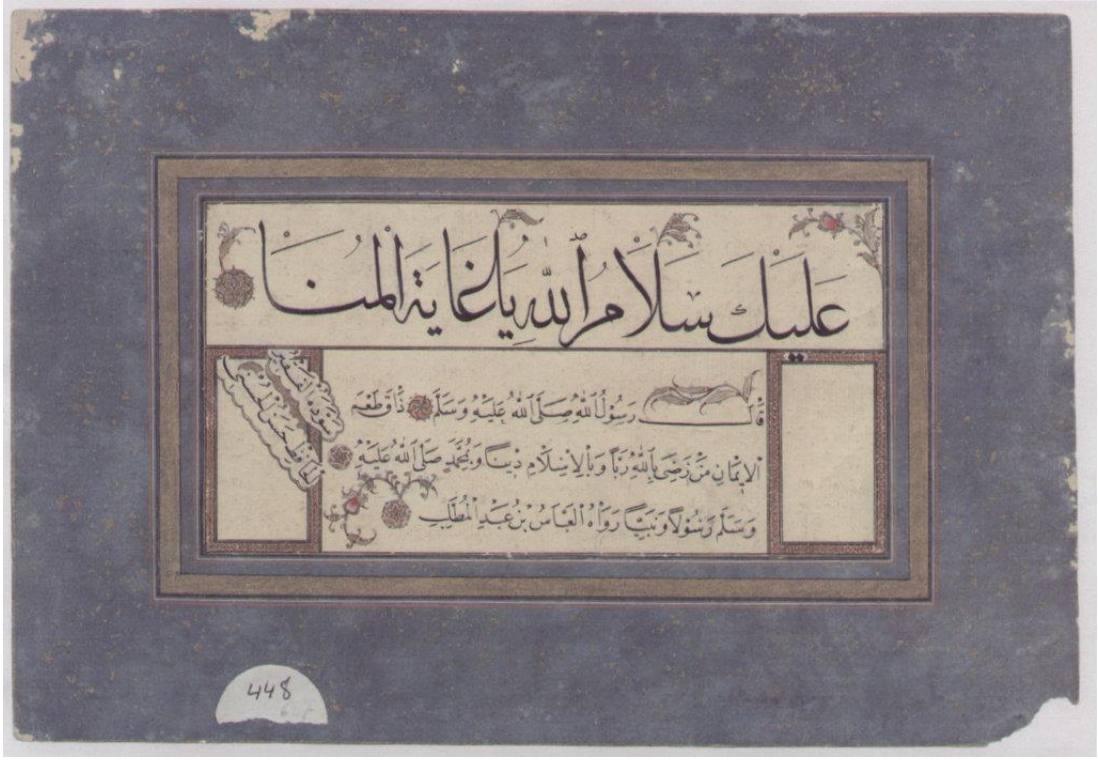 عَلَيْكَ سَلَامُ اللّٰهِ يَا غَايَةَ الْمُنَا
قَالَ رَسُولُ اللّٰهِ صَلَّى اللّٰهُ عَلَيْهِ وَسَلَّمَ ذَاقَ طَعْمَ
الْاِيْمَانِ مَنْ رَضِيَ بِاللّٰهِ رَبًّا وَبِالْاِسْلَامِ دِينًا وَبِمُحَمَّدٍ صَلَّى اللّٰهُ عَلَيْهِ
وَسَلَّمَ رَسُوْلًا وَنَبِيًّا رَوَاهُ الْعَبَّاسُ بْنُ عَبْدِ الْمُطَّلِبِ
سوده الفقير
الحافظ حسن
448